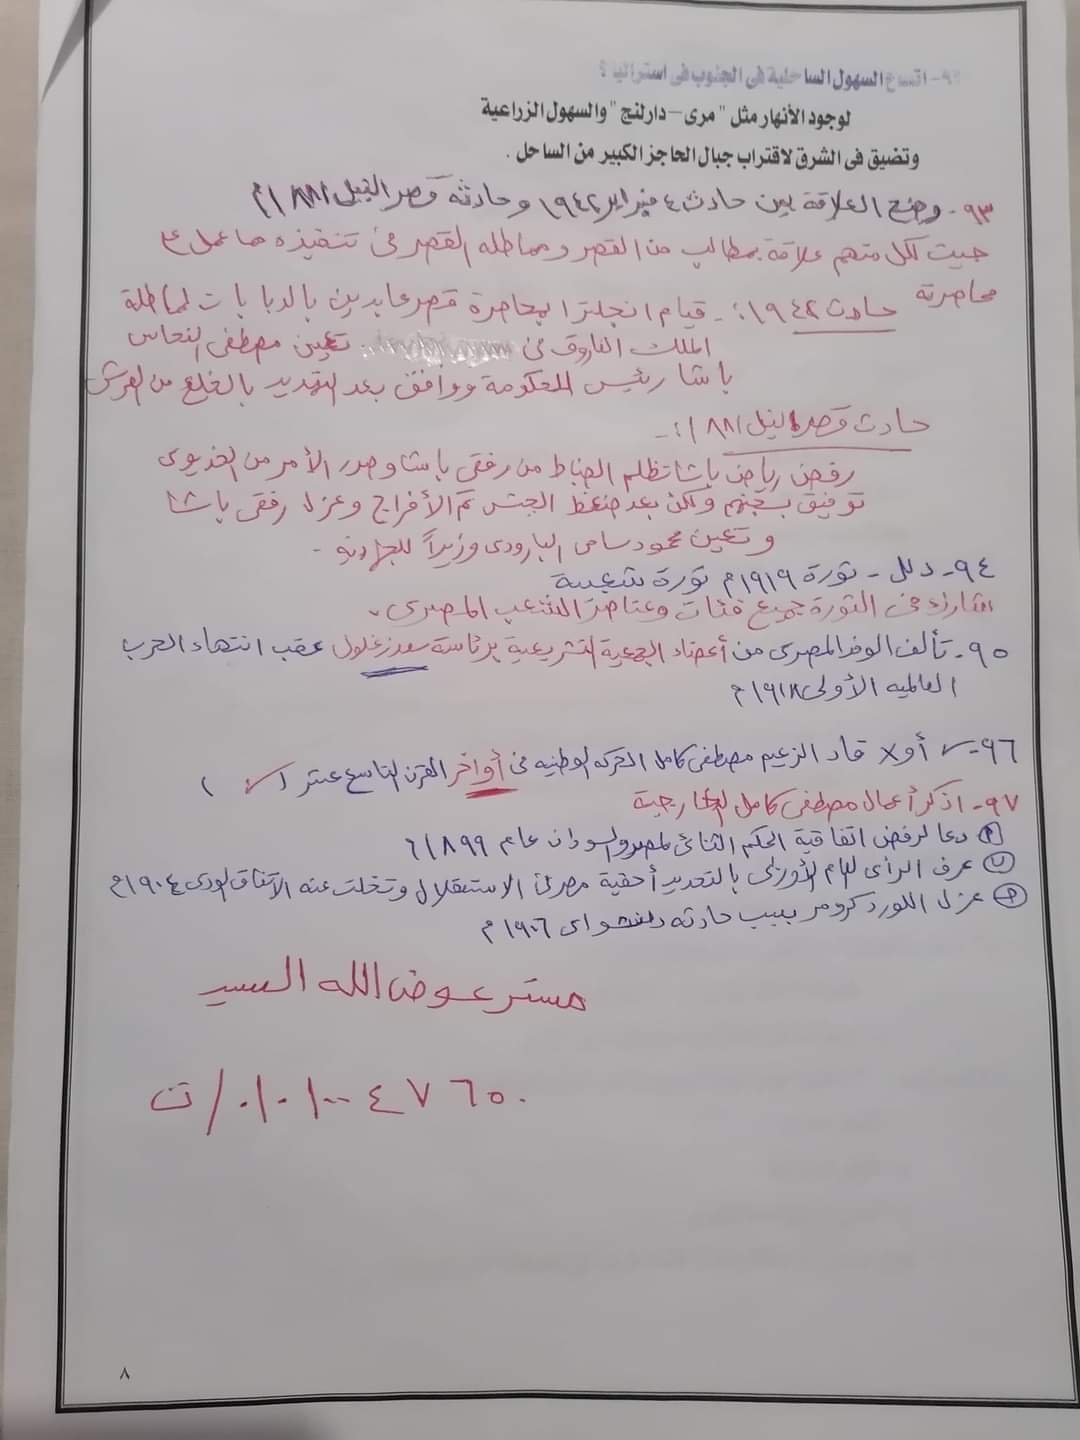 اتساع السهول الساحلية فى الجنوب فى استراليا ؟
لوجود الأنهار مثل " مرى – دارلنج " والسهول الزراعية
وتضيق فى الشرق لاقتراب جبال الحاجز الكبير من الساحل .
٩٣- وضح العلاقة بين حادث ٤ فبراير ١٩٤٢ وحادثة قصر النيل ١٨٨١م
حيث لكل منهم علاقة بمطالب من القصر ومماطله القصر فى تنفيذه
محاصرته حادث ١٩٤٢ :- قيام انجلترا بمحاصرة قصر عابدين بالدبابات لمماطلة
الملك الفاروق فى تعين مصطفى النحاس
باشا رئيس للحكومة ووافق بعد التهديد بالخلع من العرش
حادث قصر النيل ١٨٨١ :-
رفض رياض باشا تظلم الضباط من رفقى باشا وصدر الأمر من الخديوى
توفيق بسجنهم ولكن بعد ضغط الجيش تم الأفراج وعزل رفقى باشا
وتعين محمود سامى البارودى وزيراً للجهادية -
٩٤- دلل - ثورة ١٩١٩م ثورة شعبية
اشترك فى الثورة جميع فئات وعناصر الشعب المصرى .
٩٥- تألف الوفد المصرى من أعضاء الجمعية التشريعية برئاسة سعد زغلول عقب انتهاء الحرب
العالميه الأولى ١٩١٨م
٩٦- ✓ أو x قاد الزعيم مصطفى كامل الحركه الوطنيه فى أواخر القرن التاسع عشر ( ✓ )
٩٧- اذكر أعمال مصطفى كامل الخارجية
دعا لرفض اتفاقية الحكم الثنائى لمصر والسودان عام ١٨٩٩
عرف الرأى العام الأوربى بالتحديد أحقية مصر فى الاستقلال وتخلت عنه الاتفاق الودى ١٩٠٤م
عزل اللورد كرومر بسبب حادثه دنشواى ١٩٠٦م
مستر عوض الله السيد
ت / ٠١٠١٠٠٤٧٦٥٠
٨